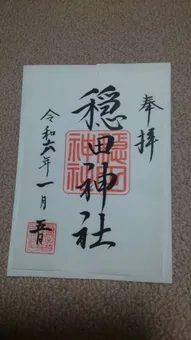 奉拝
穏田神社
穏田
神社
令和六年一月吉日